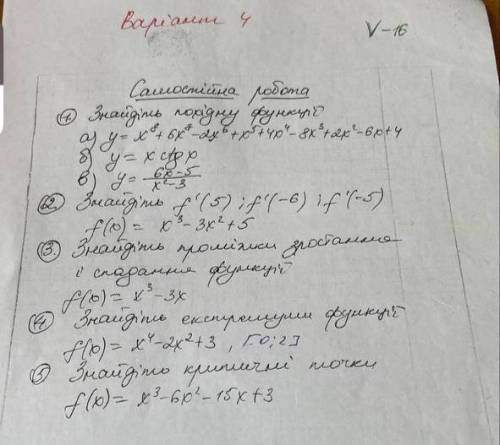 Варіант 4
V-16
Самостійна робота
1. Знайдіть похідну функції
а) y = x⁸ + 6x⁷ - 2x⁶ + x⁵ + 4x⁴ - 8x³ + 2x² - 6x + 4
б) y = x ctg x
в) y = (6x - 5)/(x² - 3)
2. Знайдіть f'(5) ; f'(-6) ; f'(-5)
f(x) = x³ - 3x² + 5
3. Знайдіть проміжки зростання
і спадання функції
f(x) = x³ - 3x
4. Знайдіть екстремуми функції
f(x) = x⁴ - 2x² + 3 , [0; 2]
5. Знайдіть критичні точки
f(x) = x³ - 6x² - 15x + 3